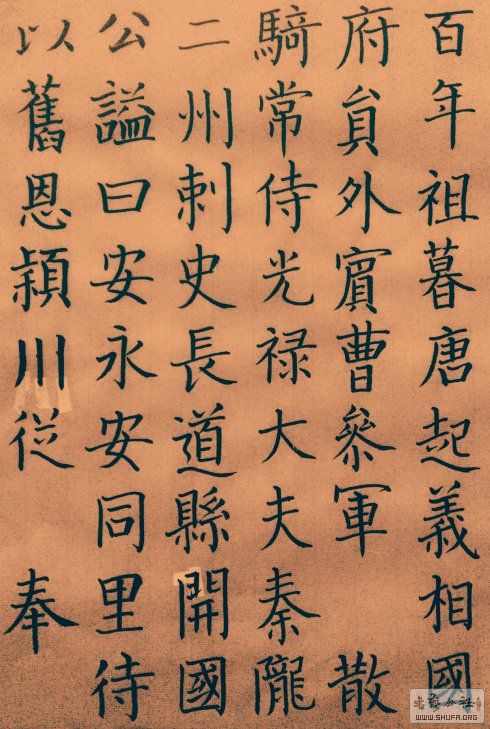 百年祖暮唐起義相國
府貟外賔曹叅軍 散
騎常侍光禄大夫秦隴
二州刺史長道縣開國
公謚曰安永安同里待
以舊恩潁川從 奉
WWW.SHUFA.ORG